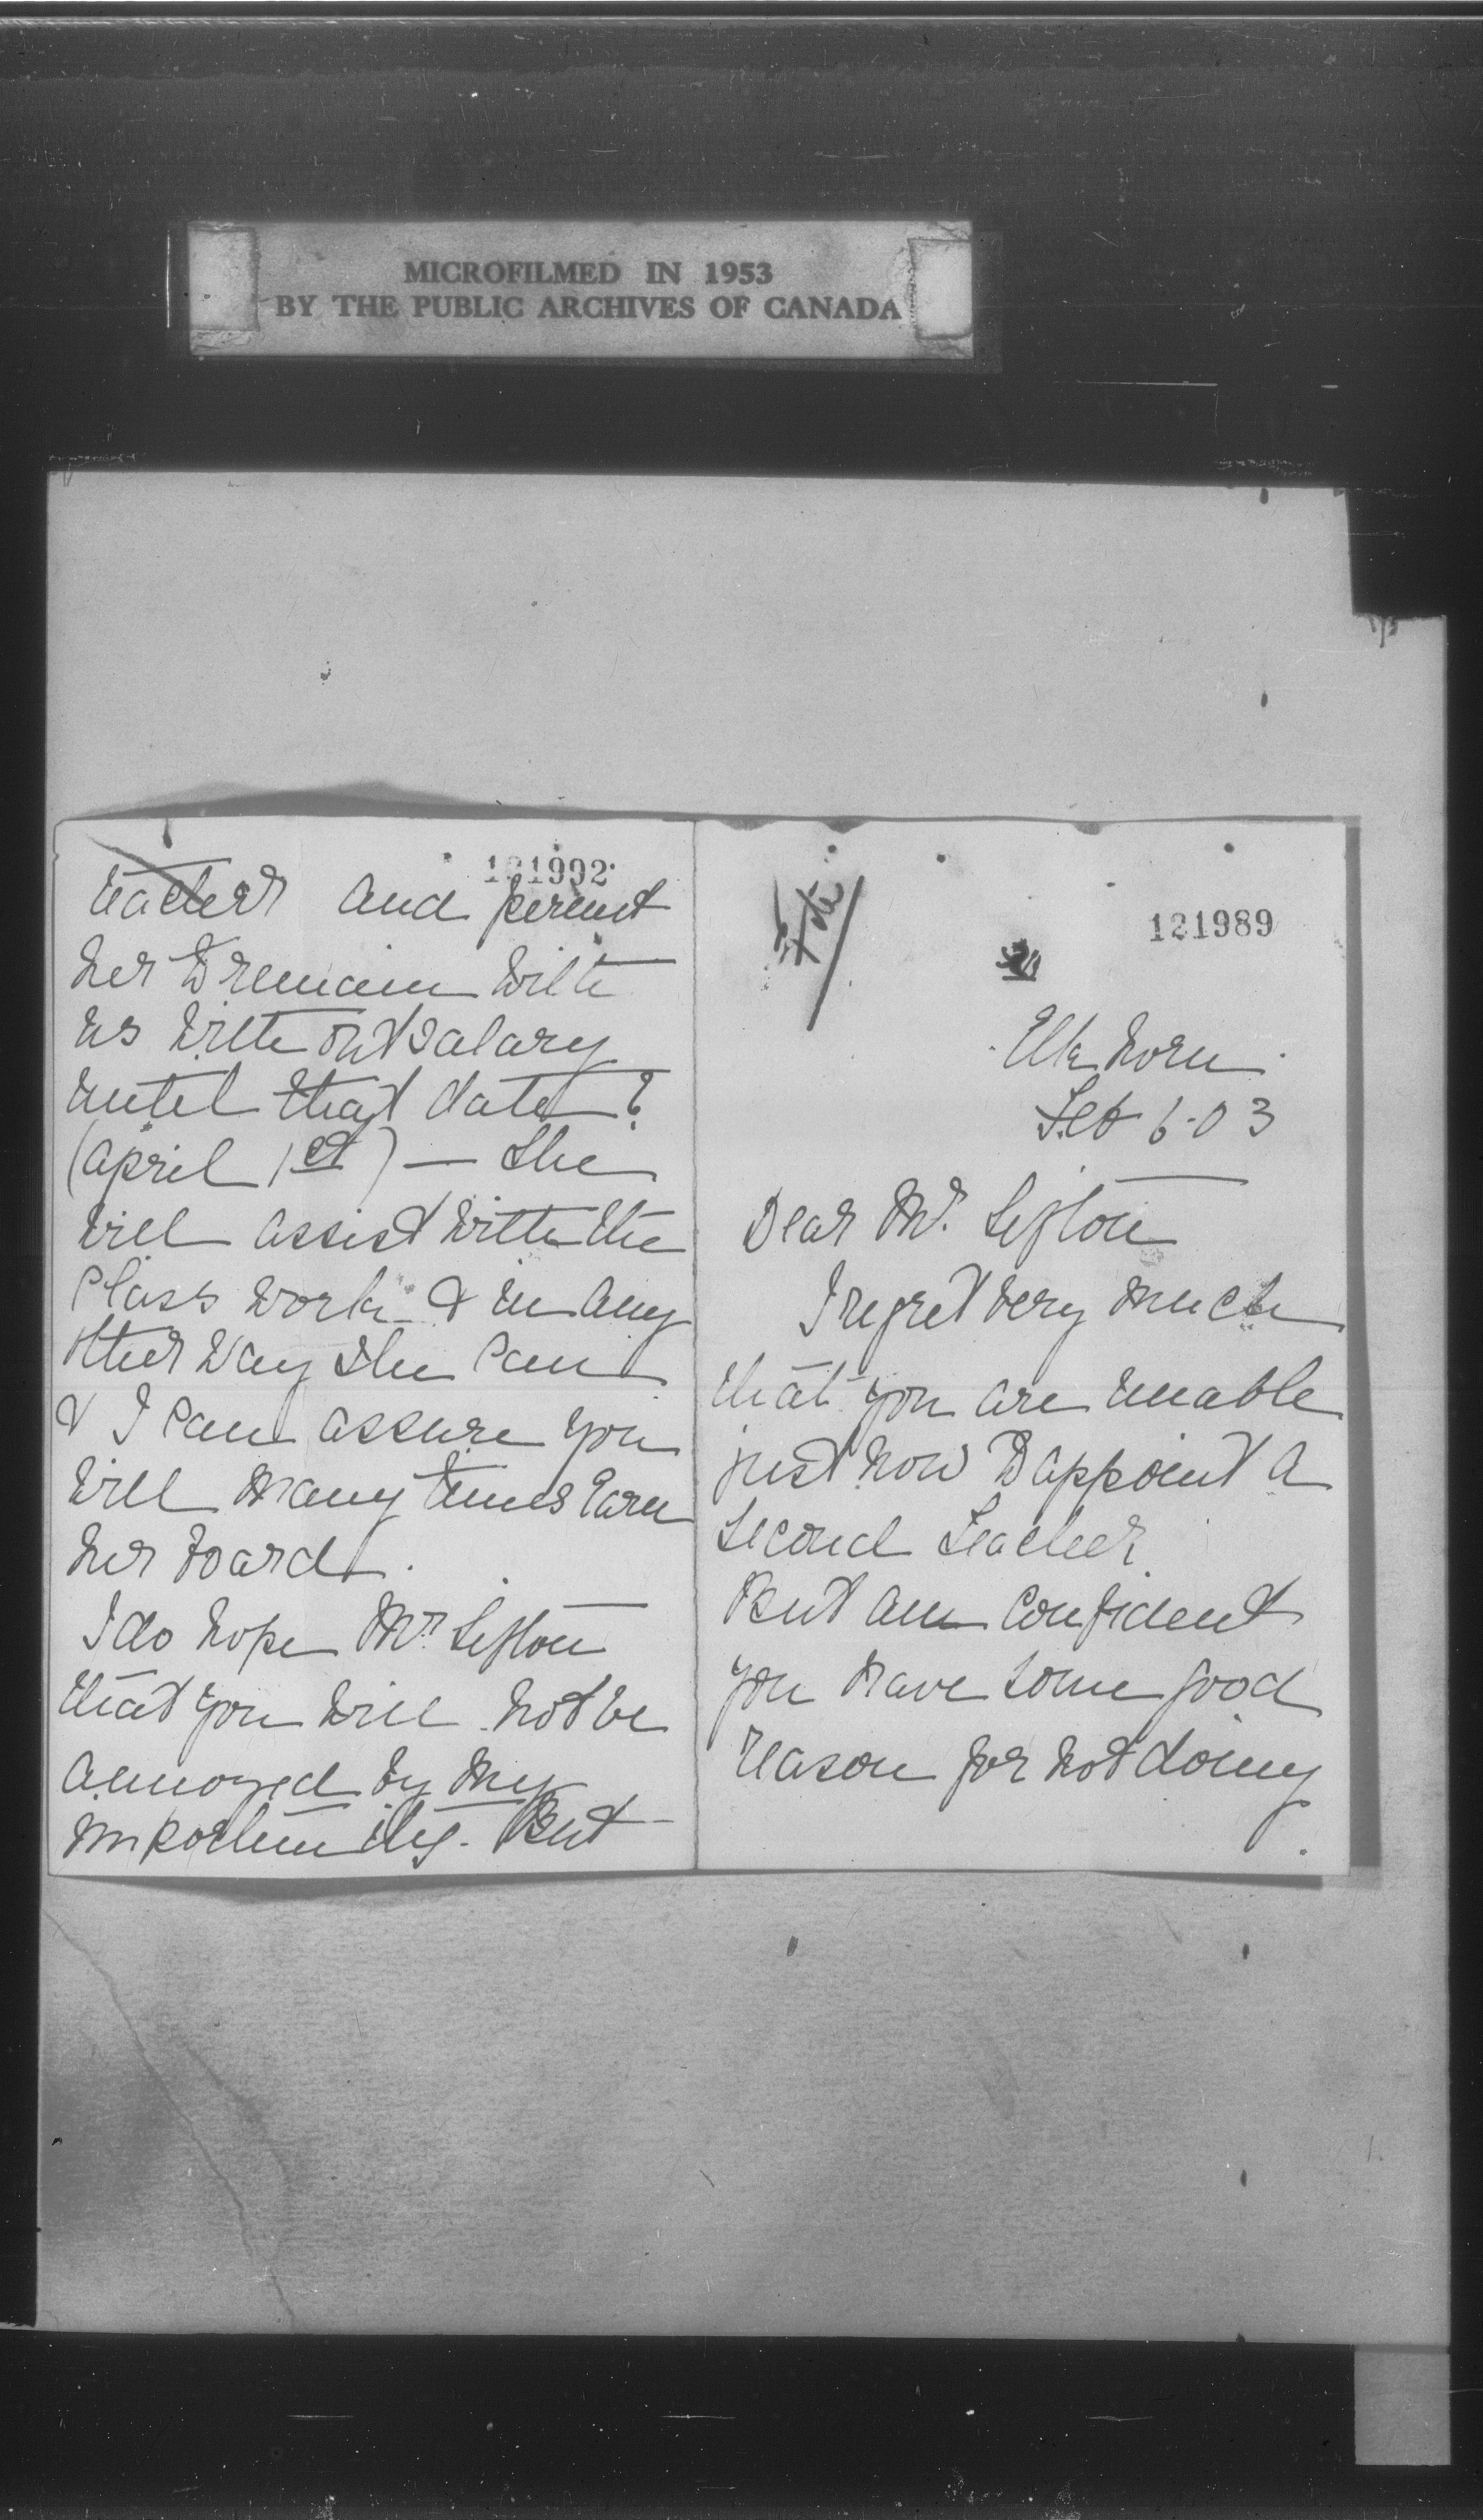 MICROFILMED IN 1953
BY THE PUBLIC ARCHIVES OF CANADA
121992
teacher and permit
her to remain with
us without salary
until that date?
(April 1st) — She
will assist with the
Class work & in any
other way she can
& I can assure you
will many times earn
her board.
I do hope Mr. Sifton
that you will not be
annoyed by my
importunity. But
121989
Elkhorn
Feb 6-03
Dear Mr. Sifton
I regret very much
that you are unable
just now to appoint a
second Teacher.
But am confident
you have some good
reason for not doing